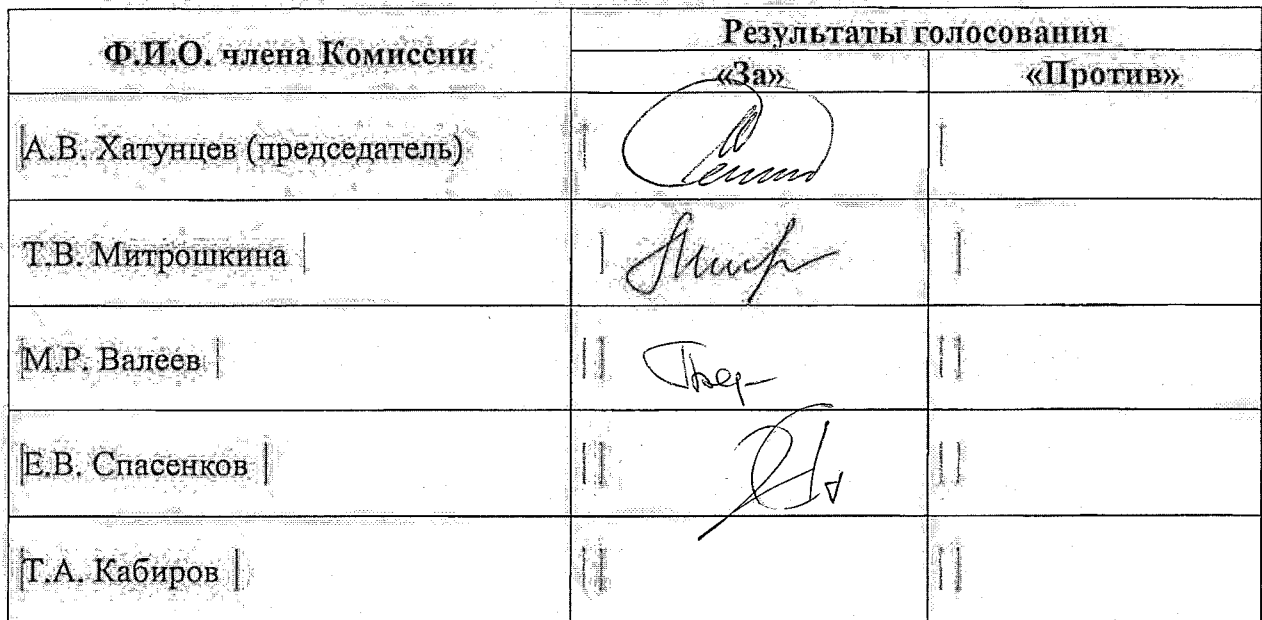 Ф.И.О. члена Комиссии
Результаты голосования
«За»
«Против»
А.В. Хатунцев (председатель)
Т.В. Митрошкина
М.Р. Валеев
Е.В. Спасенков
Т.А. Кабиров